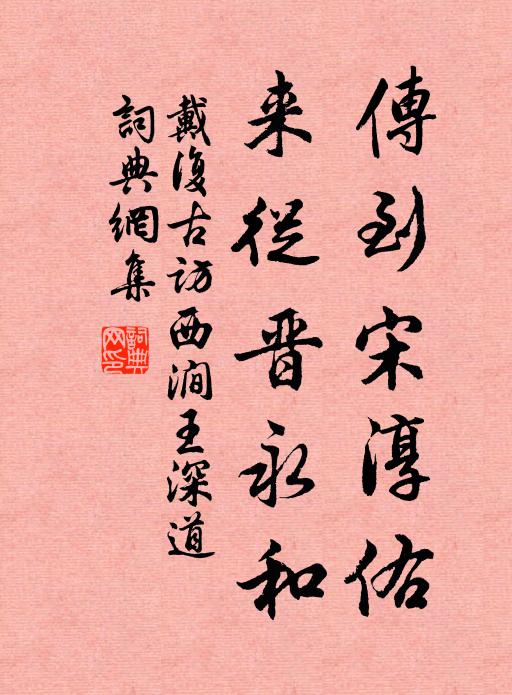 傳到宋淳佑
来從晋永和
戴復古訪西澗王深道
詞典網集
詞典网印